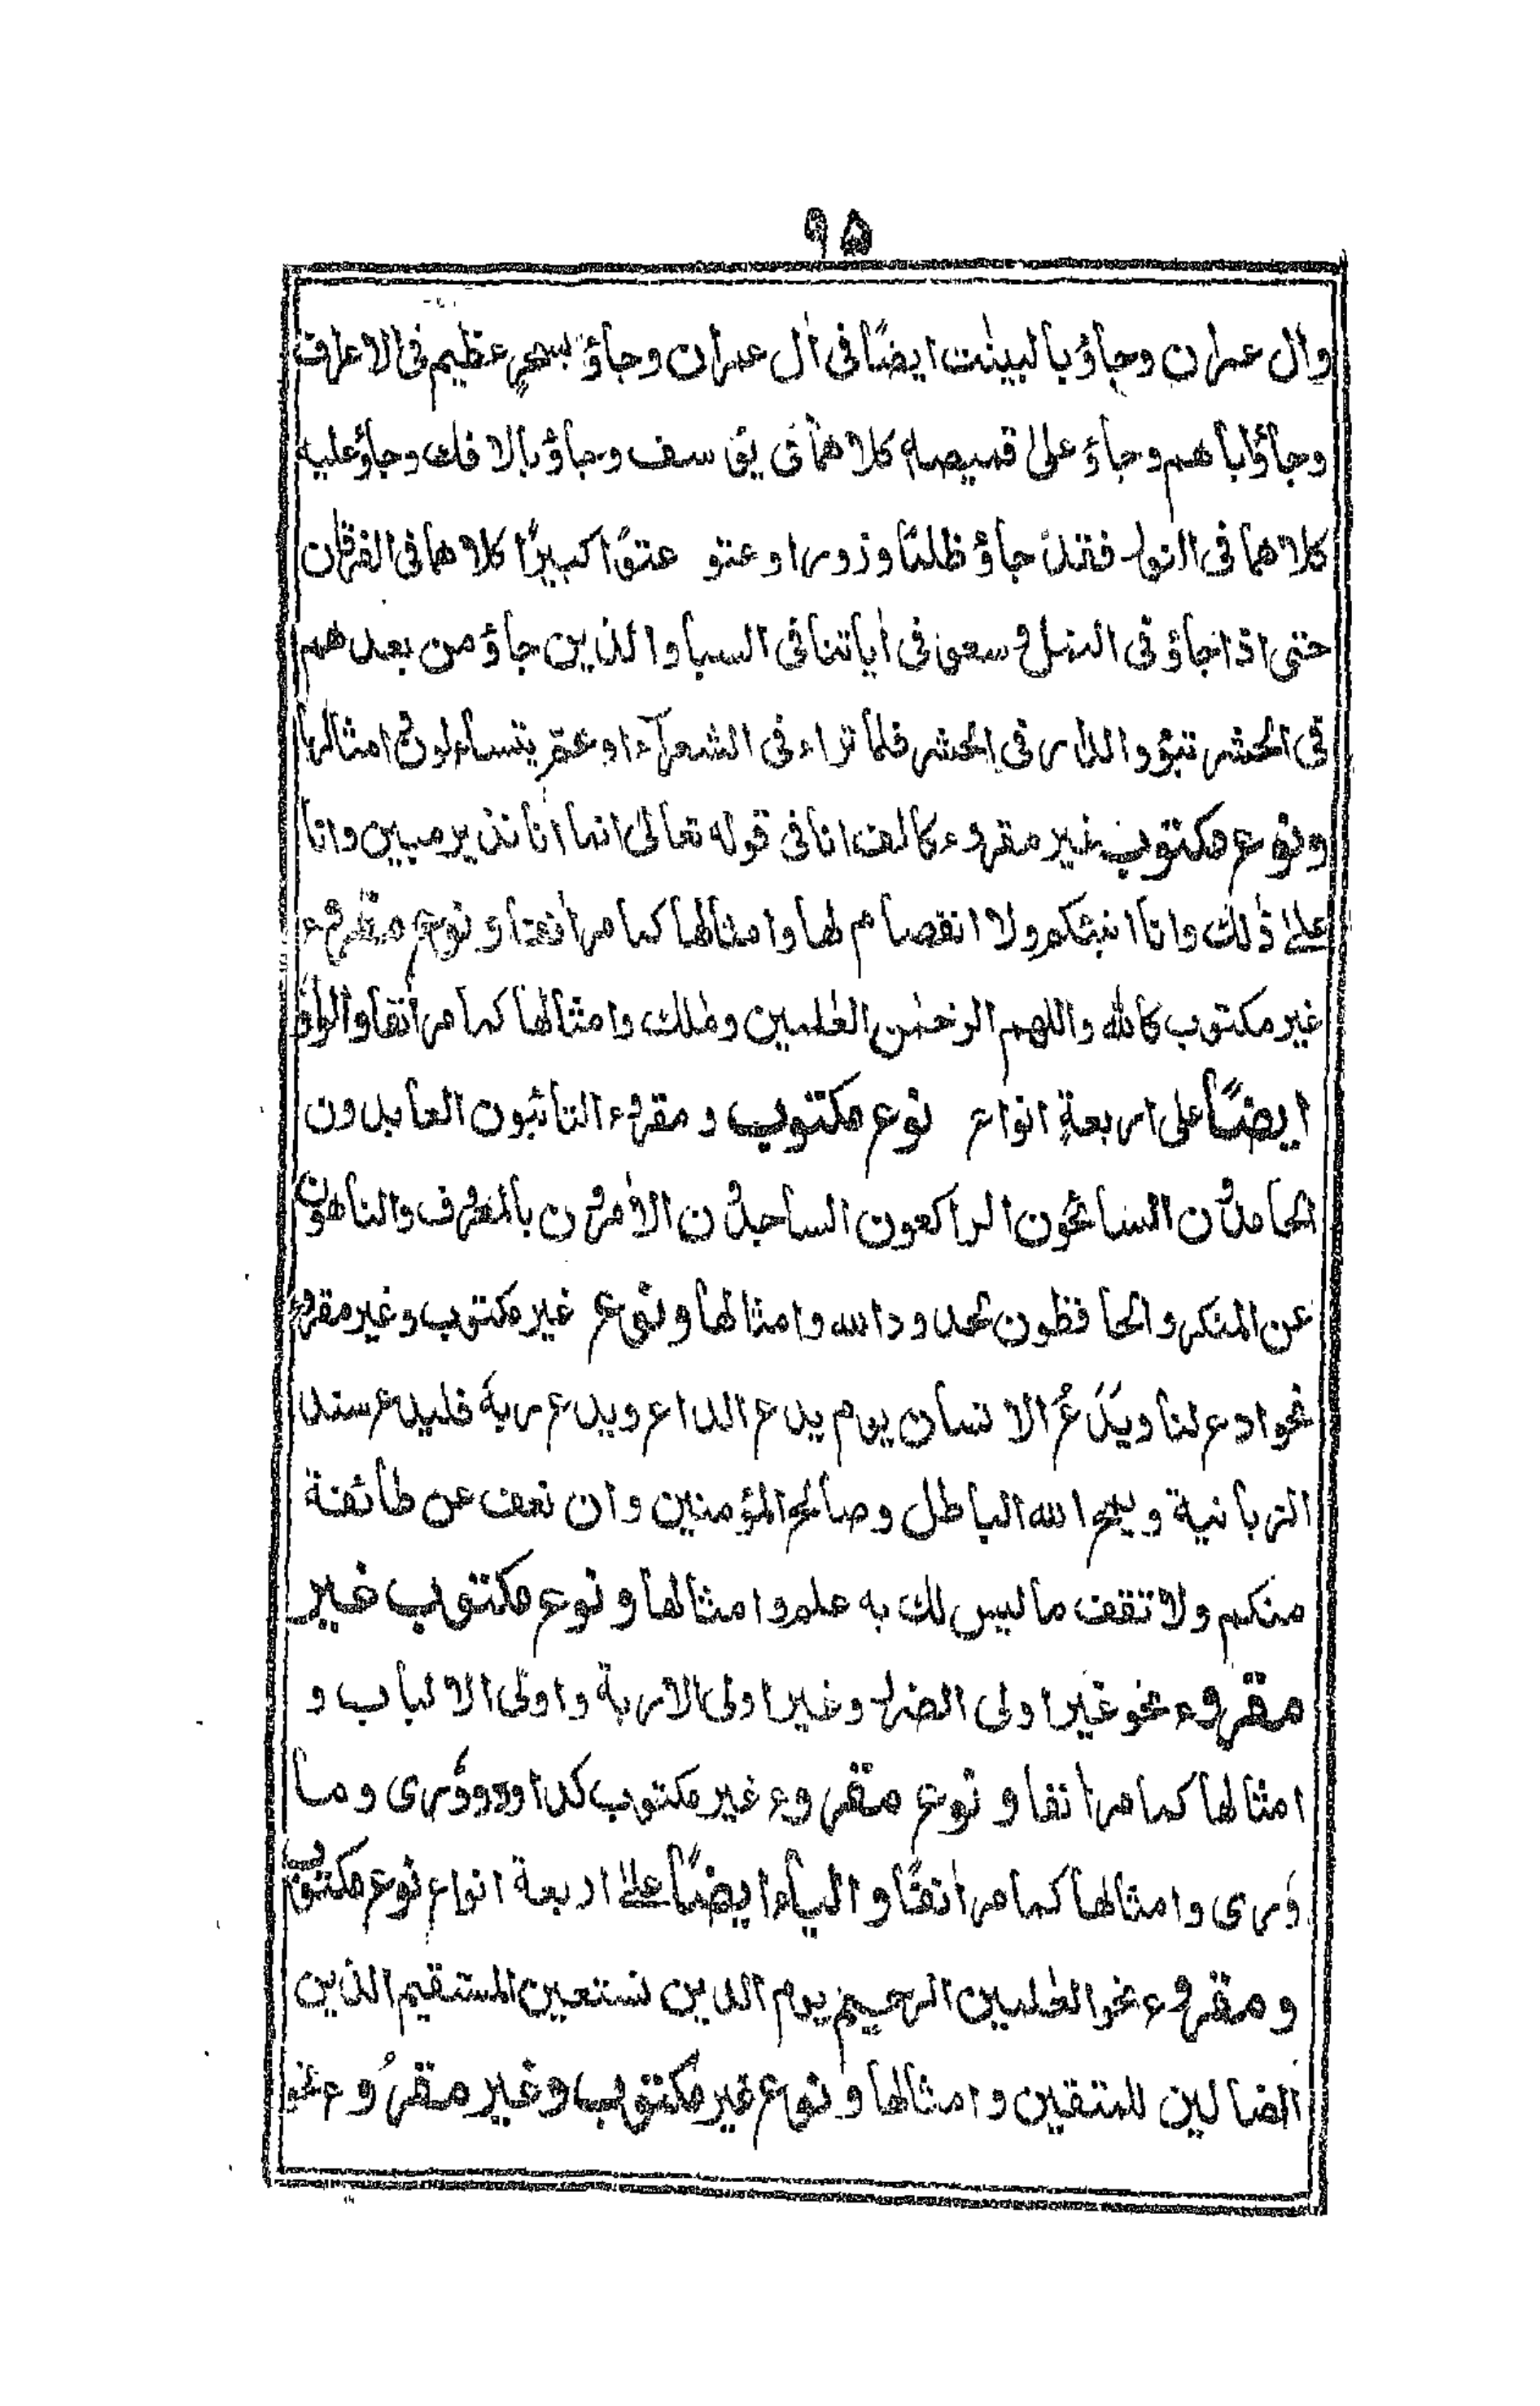 ۹۵
وال عمران وجاؤ بالبينٰت ايضًا فى اٰل عمران وجاؤ بسحرٍ عظيم فى الاعراف
وجاؤ اباهم وجاؤ على قميصه كلاهما فى يوسف وجاؤ بالافك وجاؤ عليه
كلاهما فى النور فقد جاؤ ظلمًا وزورا وعتو عتوًا كبيرًا كلاهما فى الفرقان
حتى اذا جاؤ فى النمل وسعو فى اٰياتنا فى السبا والذين جاؤ من بعدهم
فى الحشر تبؤو الدار فى الحشر فلما تراء فى الشعرآء وعم يتساءلون امثالها
ونوع مكتوب غير مقروء كالف انا فى قوله تعالى انما انا نذير مبين وانا
علىٰ ذٰلك وانا انبئكم ولا انفصام لها وامثالها كما مر اٰنفا ونوع مقروء
غير مكتوب كالله واللهم الرحمٰن العٰلمين وملٰك وامثالها كما مر اٰنفا والواو
ايضًا على اربعةٍ انواع نوع مكتوب ومقروء التائبون العابدون
الحامدون السائحون الراكعون الساجدون الاٰمرون بالمعروف والناهون
عن المنكر والحافظون لحدود الله وامثالها ونوع غير مكتوب وغير مقروء
نحو ادع لنا ويدعُ الانسان يوم يدع الداع ويدع ربه فليدع سندع
الزبانية ويمح الله الباطل وصالح المؤمنين وان نعف عن طائفة
منكم ولا تقف ما ليس لك به علم وامثالها ونوع مكتوب غير
مقروء نحو غير اولى الضرر وغير اولى الاربة واولى الالباب و
امثالها كما مر انفا ونوع مقروء غير مكتوب كداود وورى وما
وٗرى وامثالها كما مر اٰنفًا والياء ايضًا علىٰ اربعة انواع نوع مكتوب
ومقروء نحو العٰلمين الرحيم يوم الدين نستعين المستقيم الذين
الضالين للمتقين وامثالها ونوع غير مكتوب وغير مقروء نحو